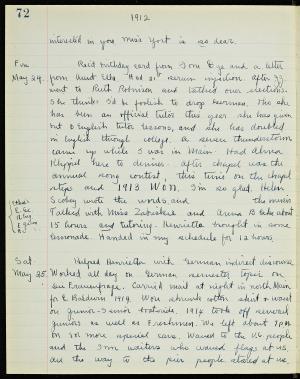 72
1912
interested in you miss York is so dear.
Fri.
May 24.
Rec'd birthday card from Tom & ye and a letter
from Aunt Ella. Had 21st serum injection. After gy
went to Ruth Robinson and talked over elections.
She thinks I'd be foolish to drop German. Tho she
has been an official tutor this year she has given
but 2 English tutor lessons, and she has doubled
in English through college. A severe thunderstorm
came up while I was in Main. Had Alma
Klippel here to dinner. After chapel was the
annual song contest, this time on the chapel
steps and 1913 WON. I'm so glad. Helen
Scobey wrote the words, and the music
Talked with Miss Zabriskie and Anna B. take about
15 hours and tutoring. Henrietta brought in some
lemonade. Handed in my schedule for 12 hours.
Sat.
May 25.
Helped Henrietta with German indirect discourse
Worked all day on German semester topic on
die Frauenfrage. Carried mail at night in north Main
for E. Baldwin 1914. Wore shrunk cotton skirt & waist
on Junior-Senior boatride. 1914 took off several
juniors as well as Freshmen. We left about 7 P.M.
on six more special cars. Waved to the V.B. people
and the Inn waiters who waved flags at us.
All the way to the pier people stared at us,